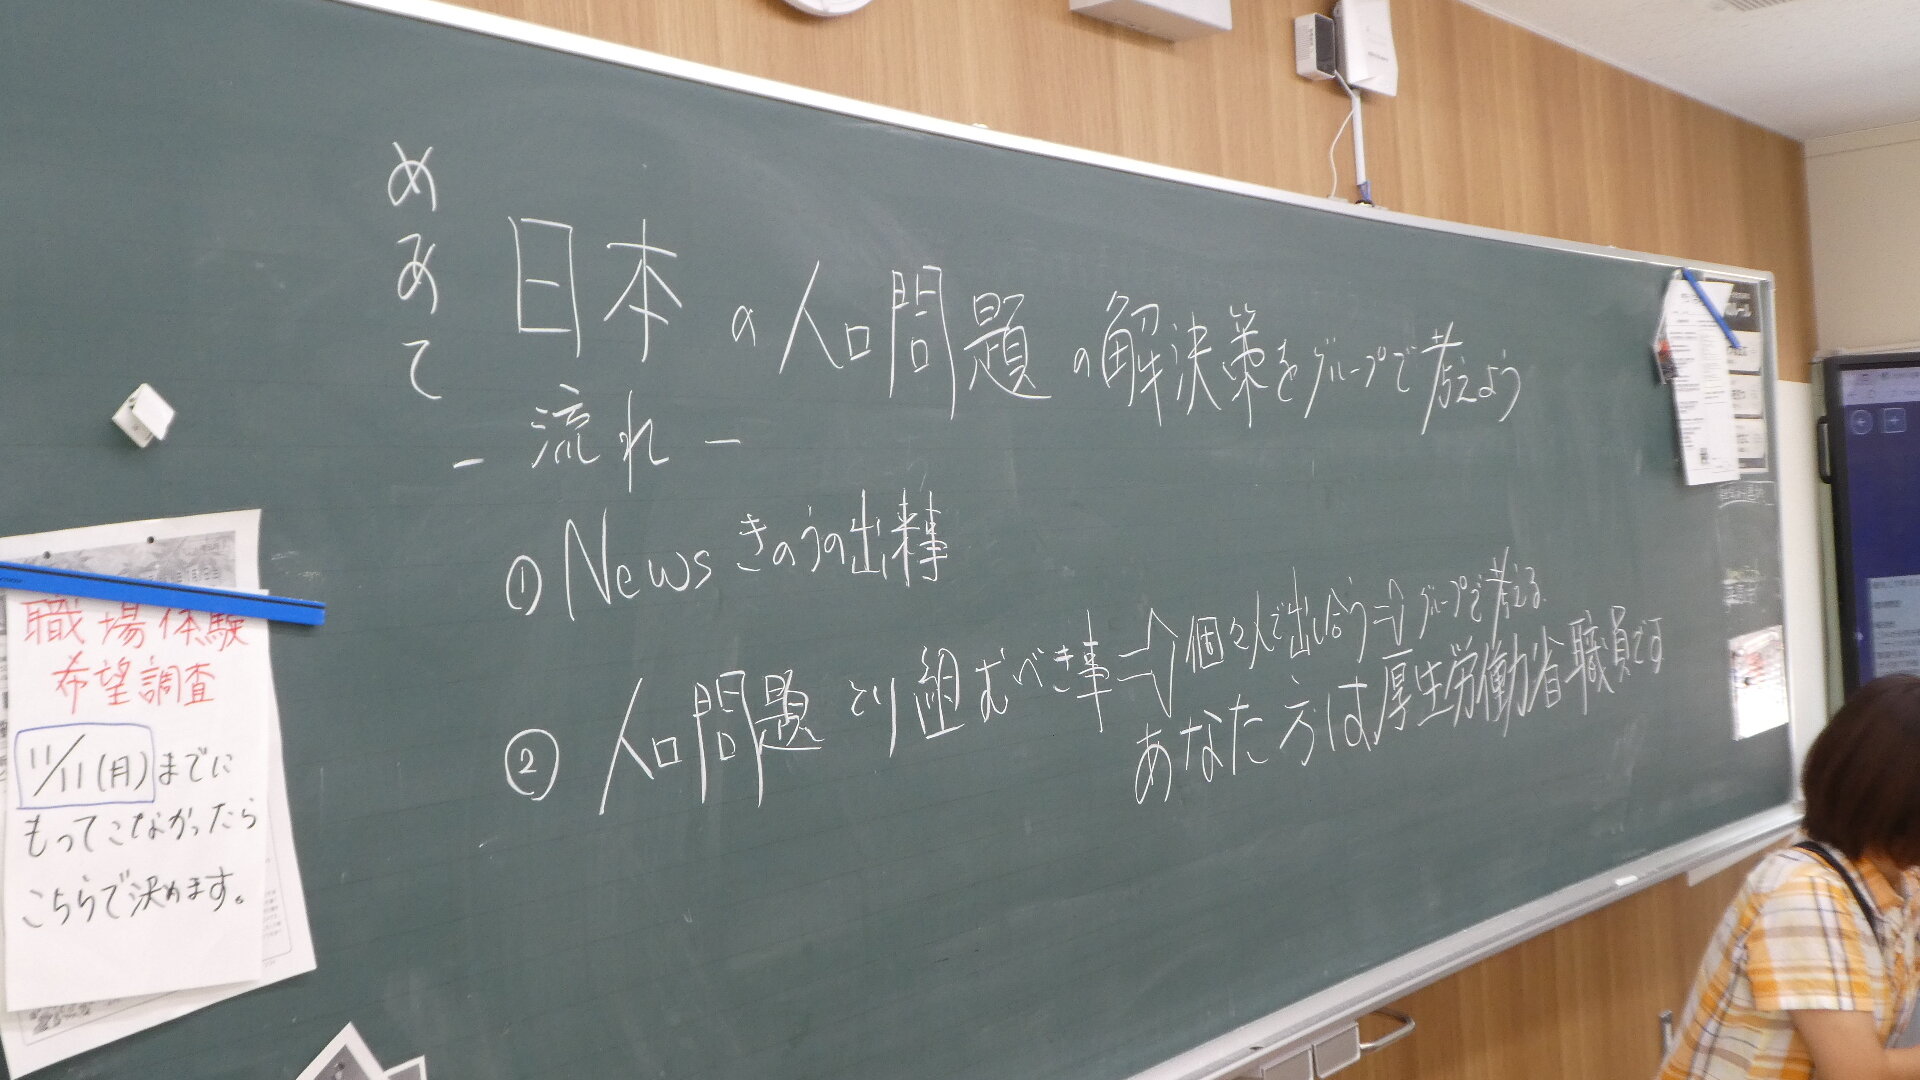 めあて
日本の人口問題の解決策をグループで考えよう
- 流れ -
① News きのうの出来事
② 人口問題 とり組むべき事 ⇒ 個々人で出し合う ⇒ グループで考える
あなた方は厚生労働省職員です
職場体験
希望調査
11/11(月)までに
もってこなかったら
こちらで決めます。